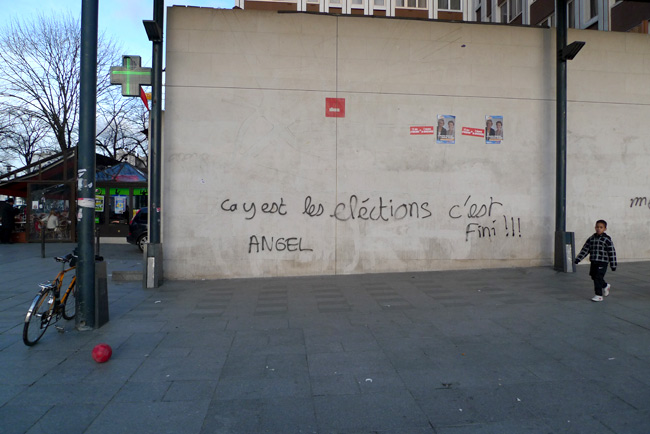 ca y est les eléctions c'est
fini !!!
ANGEL